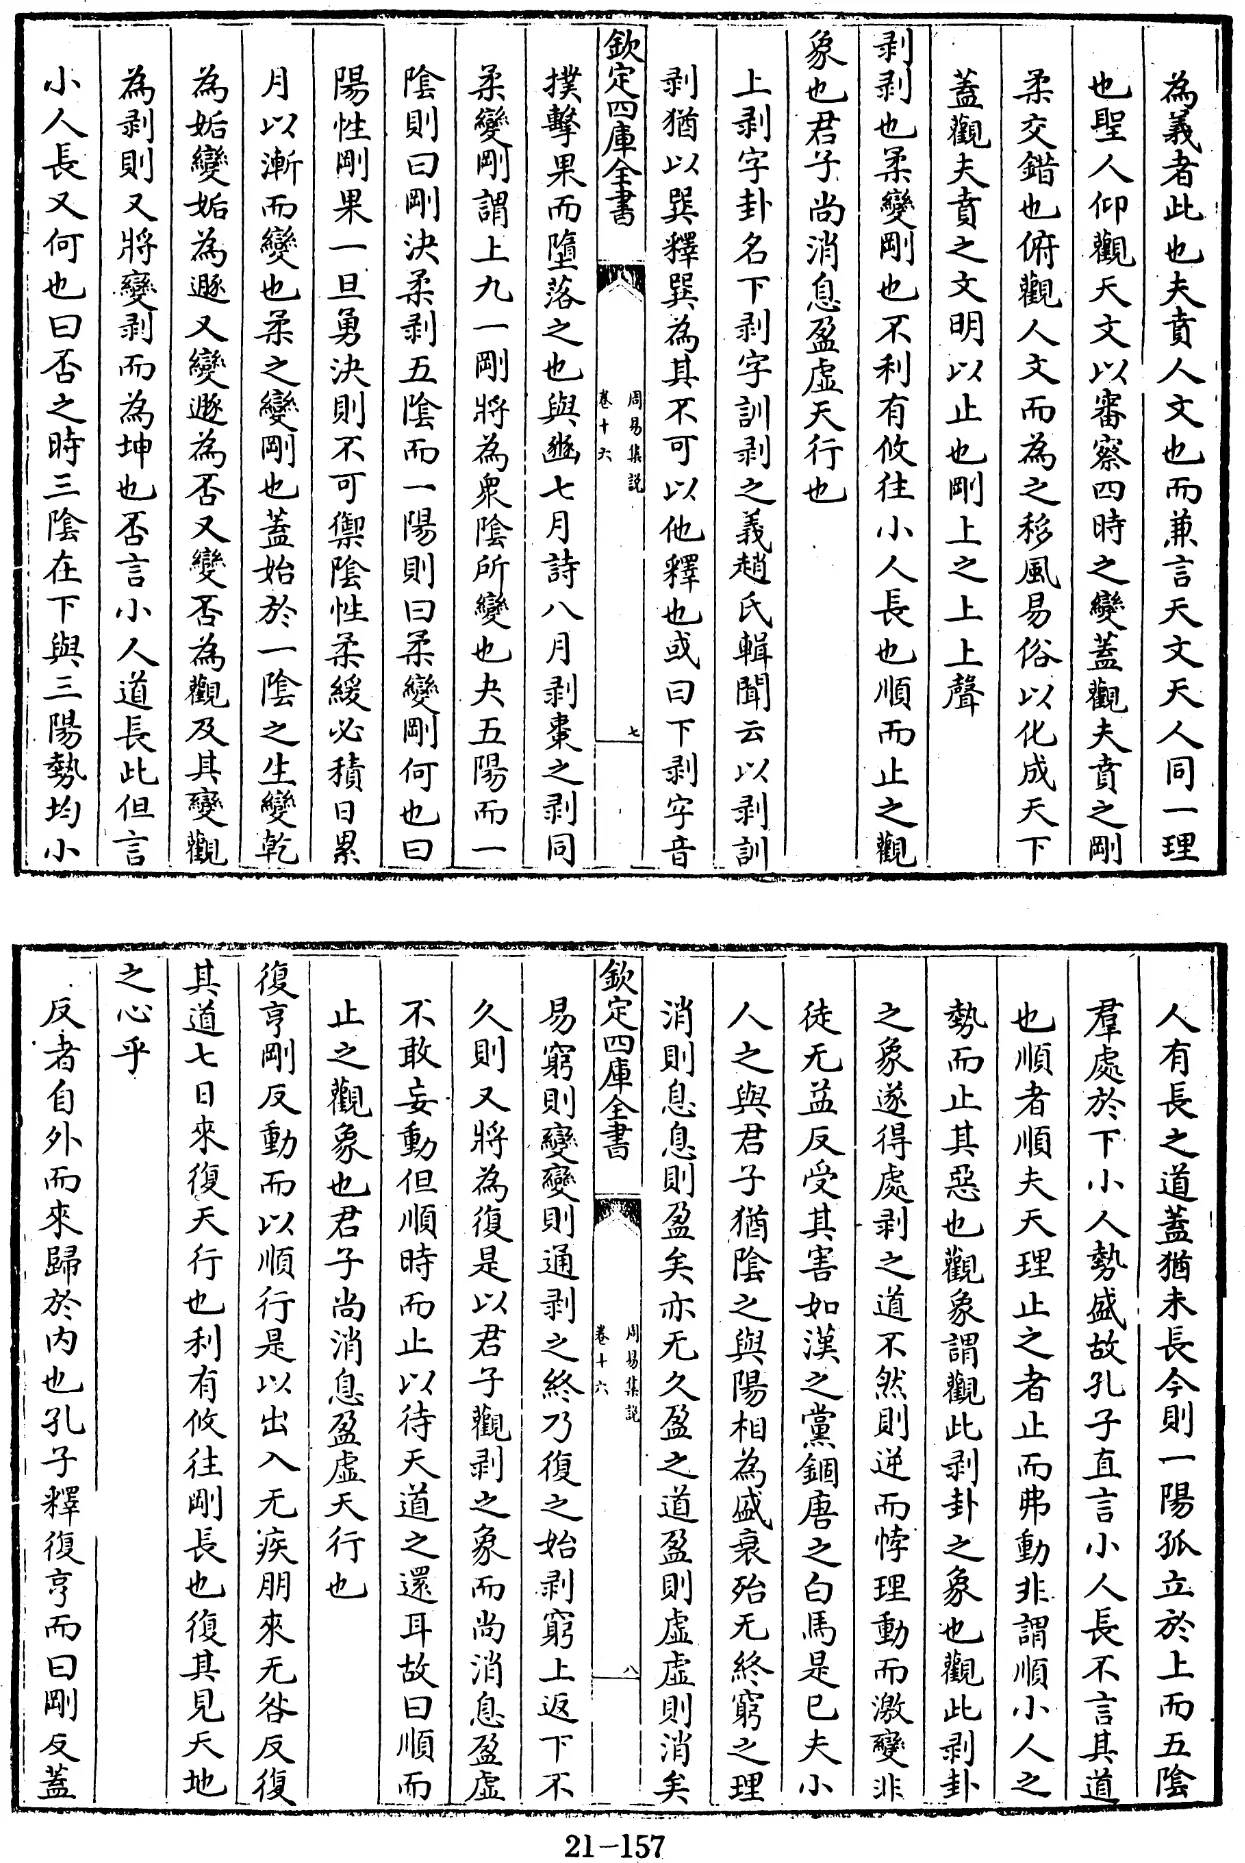 為義者此也夫賁人文也而兼言天文天人同一理
也聖人仰觀天文以審察四時之變蓋觀夫賁之剛
柔交錯也俯觀人文而為之移風易俗以化成天下
蓋觀夫賁之文明以止也剛上之上上聲
剥剥也柔變剛也不利有攸往小人長也順而止之觀
象也君子尚消息盈虛天行也
上剥字卦名下剥字訓剥之義趙氏輯聞云以剥訓
剥猶以巽釋巽為其不可以他釋也或曰下剥字音
欽定四庫全書
周易集説
卷十六
七
撲擊果而墮落之也與豳七月詩八月剥棗之剥同
柔變剛謂上九一剛將為衆陰所變也夬五陽而一
陰則曰剛決柔剥五陰而一陽則曰柔變剛何也曰
陽性剛果一旦勇決則不可禦陰性柔緩必積日累
月以漸而變也柔之變剛也蓋始於一陰之生變乾
為姤變姤為遯又變遯為否又變否為觀及其變觀
為剥則又將變剥而為坤也否言小人道長此但言
小人長又何也曰否之時三陰在下與三陽勢均小
人有長之道蓋猶未長今則一陽孤立於上而五陰
羣處於下小人勢盛故孔子直言小人長不言其道
也順者順夫天理止之者止而弗動非謂順小人之
勢而止其惡也觀象謂觀此剥卦之象也觀此剥卦
之象遂得處剥之道不然則逆而悖理動而激變非
徒无益反受其害如漢之黨錮唐之白馬是已夫小
人之與君子猶陰之與陽相為盛衰殆无終窮之理
消則息息則盈矣亦无久盈之道盈則虛虛則消矣
欽定四庫全書
周易集説
卷十六
八
易窮則變變則通剥之終乃復之始剥窮上返下不
久則又將為復是以君子觀剥之象而尚消息盈虛
不敢妄動但順時而止以待天道之還耳故曰順而
止之觀象也君子尚消息盈虛天行也
復亨剛反動而以順行是以出入无疾朋來无咎反復
其道七日來復天行也利有攸往剛長也復其見天地
之心乎
反者自外而來歸於内也孔子釋復亨而曰剛反蓋
21-157